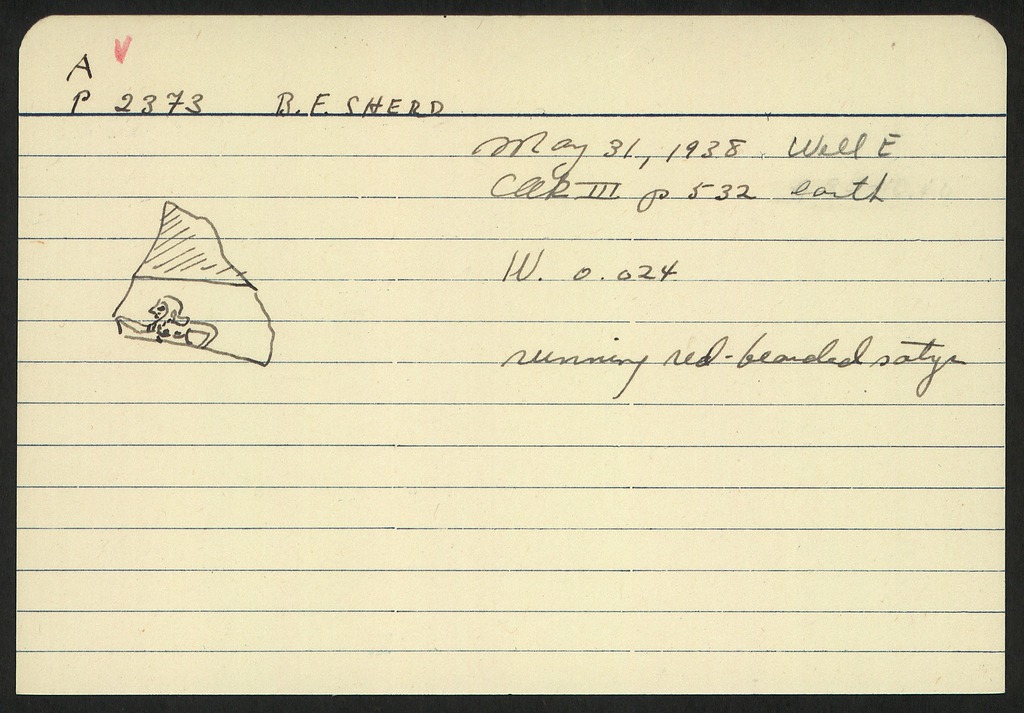 A
P 2373 B.F. SHERD
May 31, 1938 Well E
p 532 earth
W. 0.024
running red-bearded satyr